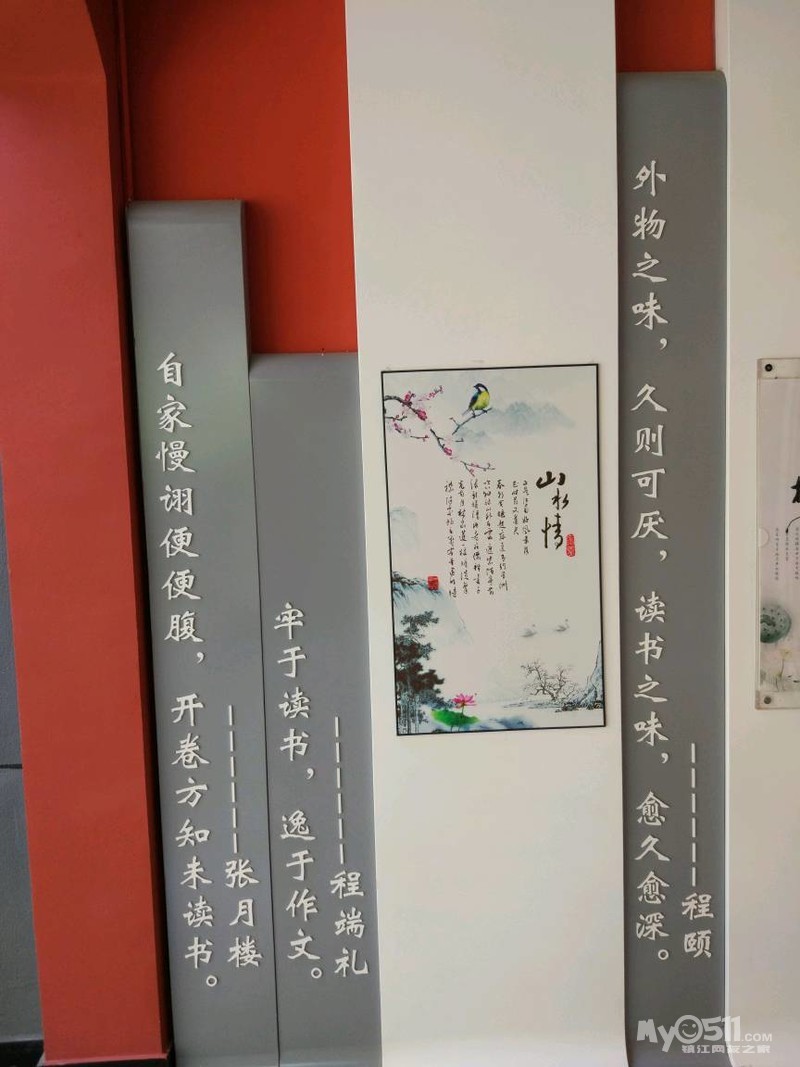 自家慢诩便便腹，开卷方知未读书。
——————张月楼
牢于读书，逸于作文。
——————程端礼
山水情
外物之味，久则可厌，读书之味，愈久愈深。
——————程颐
My0511.COM
镇江网友之家